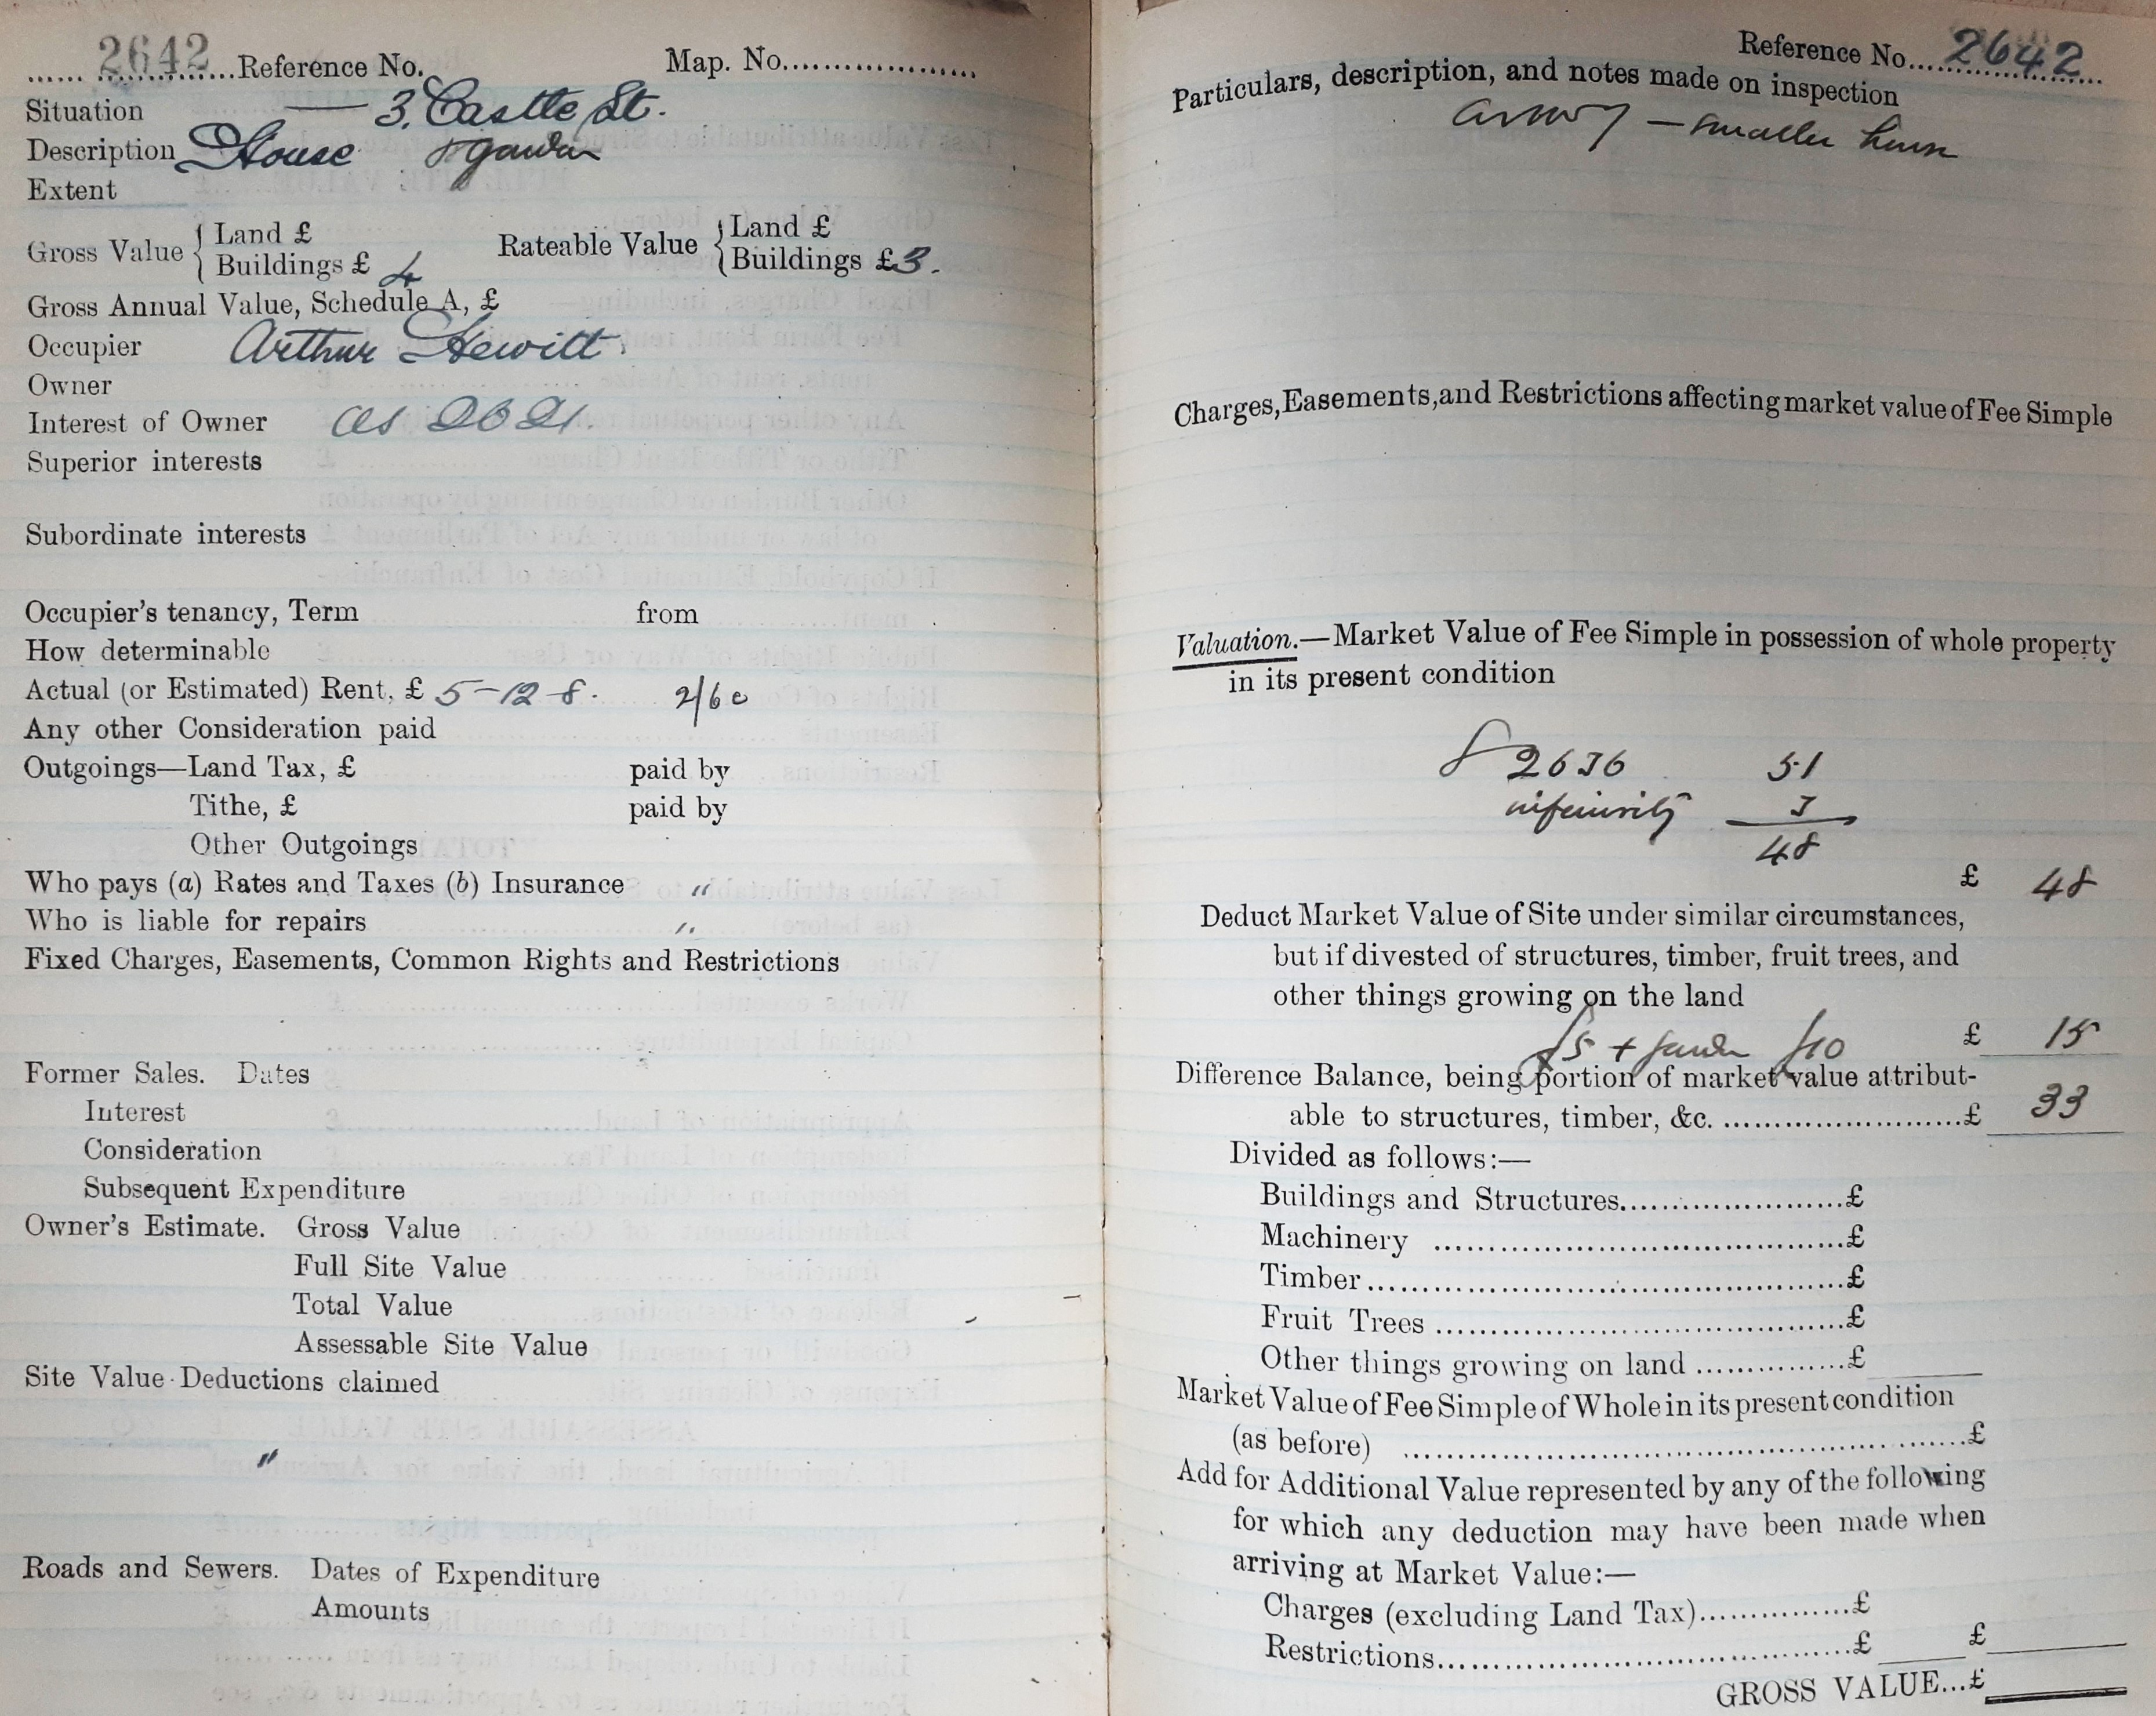 2642 Reference No. Map. No.
Situation — 3, Castle St.
Description House & garden
Extent
Gross Value { Land £
Buildings £ 4
Rateable Value { Land £
Buildings £ 3.
Gross Annual Value, Schedule A, £
Occupier Arthur Hewitt.
Owner
Interest of Owner as
Superior interests
Subordinate interests
Occupier's tenancy, Term from
How determinable
Actual (or Estimated) Rent, £ 5-12-8. 2/6
Any other Consideration paid
Outgoings—Land Tax, £ paid by
Tithe, £ paid by
Other Outgoings
Who pays (a) Rates and Taxes (b) Insurance "
Who is liable for repairs "
Fixed Charges, Easements, Common Rights and Restrictions
Former Sales. Dates
Interest
Consideration
Subsequent Expenditure
Owner's Estimate. Gross Value
Full Site Value
Total Value
Assessable Site Value
Site Value Deductions claimed
"
Roads and Sewers. Dates of Expenditure
Amounts
Reference No. 2642
Particulars, description, and notes made on inspection
— smaller house
Charges, Easements, and Restrictions affecting market value of Fee Simple
Valuation.—Market Value of Fee Simple in possession of whole property
in its present condition
2636 51
inferiority 3
48
£ 48
Deduct Market Value of Site under similar circumstances,
but if divested of structures, timber, fruit trees, and
other things growing on the land
£5 + garden £10 £ 15
Difference Balance, being portion of market value attribut-
able to structures, timber, &c. £ 33
Divided as follows:—
Buildings and Structures £
Machinery £
Timber £
Fruit Trees £
Other things growing on land £
Market Value of Fee Simple of Whole in its present condition
(as before) £
Add for Additional Value represented by any of the following
for which any deduction may have been made when
arriving at Market Value:—
Charges (excluding Land Tax) £
Restrictions £ £
GROSS VALUE...£